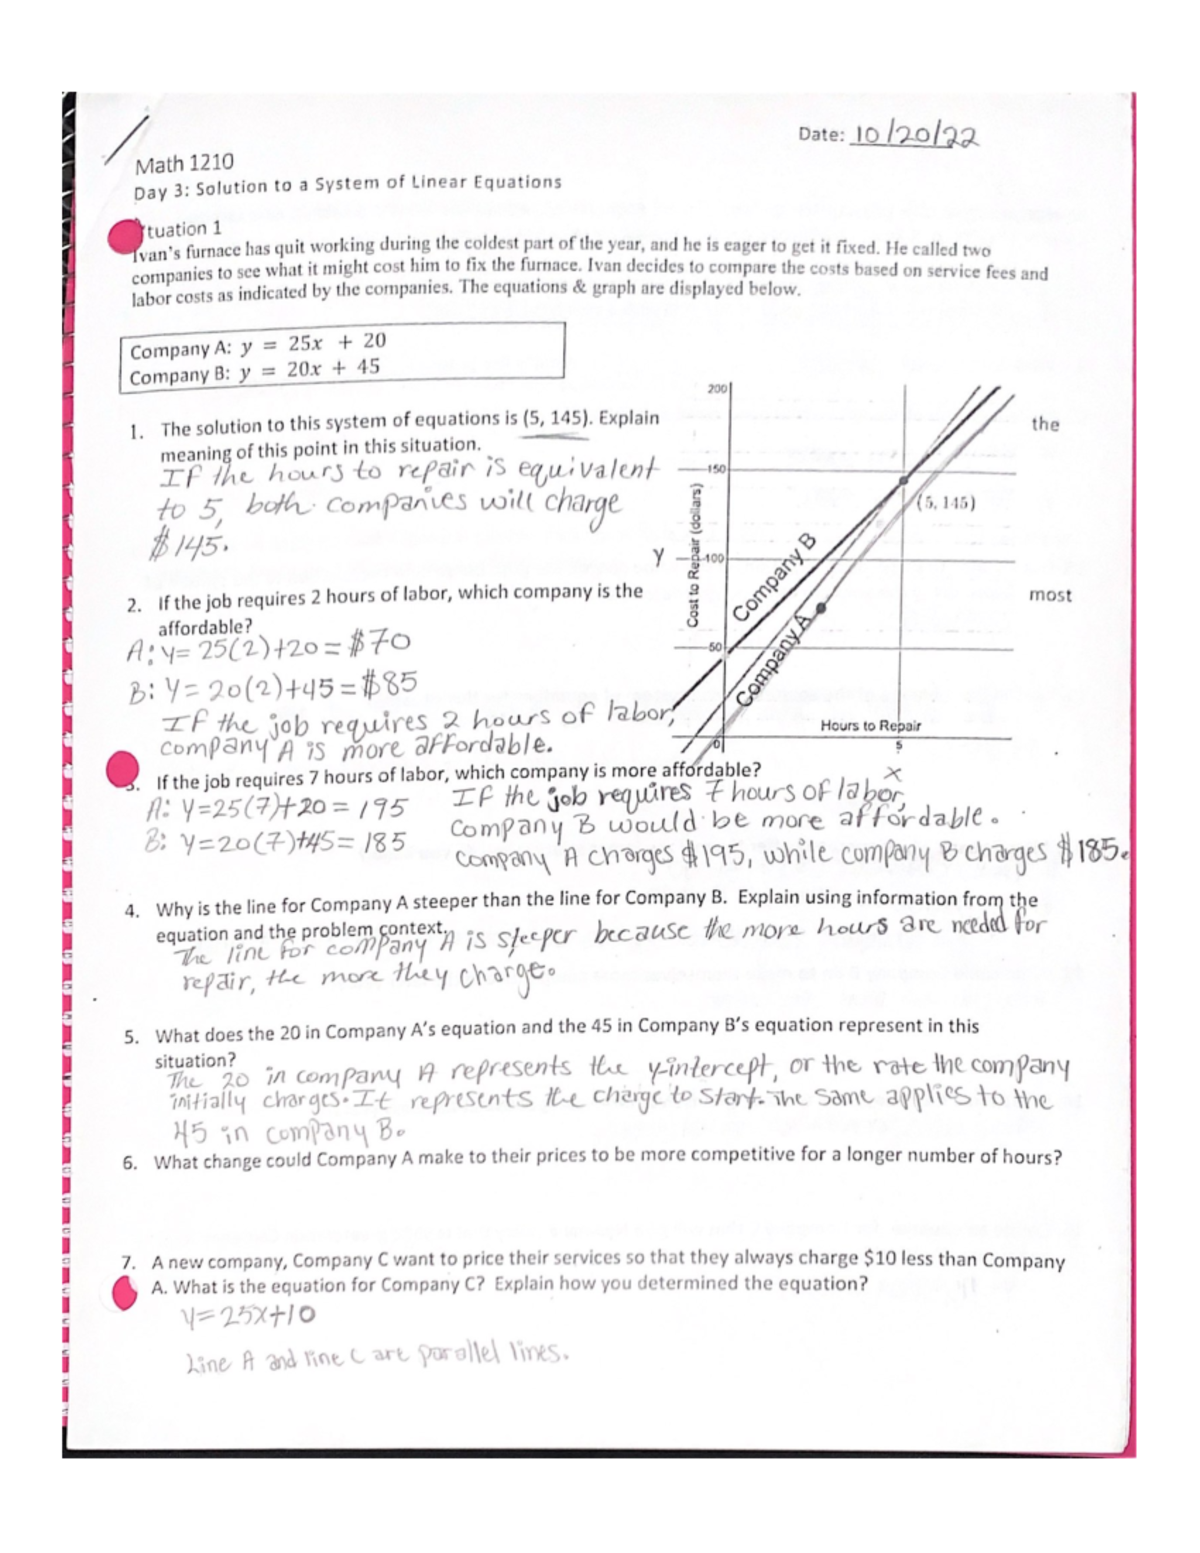 Date: 10/20/22
Math 1210
Day 3: Solution to a System of Linear Equations
tuation 1
Ivan's furnace has quit working during the coldest part of the year, and he is eager to get it fixed. He called two
companies to see what it might cost him to fix the furnace. Ivan decides to compare the costs based on service fees and
labor costs as indicated by the companies. The equations & graph are displayed below.
Company A: y = 25x + 20
Company B: y = 20x + 45
1. The solution to this system of equations is (5, 145). Explain the
meaning of this point in this situation.
If the hours to repair is equivalent
to 5, both companies will charge
$145.
2. If the job requires 2 hours of labor, which company is the most
affordable?
A: y= 25(2)+20=$70
B: y= 20(2)+45=$85
If the job requires 2 hours of labor,
company A is more affordable.
200
150
100
50
0
5
Y
x
Cost to Repair (dollars)
Company B
Company A
(5, 145)
Hours to Repair
3. If the job requires 7 hours of labor, which company is more affordable?
A: y=25(7)+20= 195
B: y=20(7)+45= 185
If the job requires 7 hours of labor,
company B would be more affordable.
company A charges $195, while company B charges $185.
4. Why is the line for Company A steeper than the line for Company B. Explain using information from the
equation and the problem context.
The line for company A is steeper because the more hours are needed for
repair, the more they charge.
5. What does the 20 in Company A's equation and the 45 in Company B's equation represent in this
situation?
The 20 in company A represents the y-intercept, or the rate the company
initially charges. It represents the charge to start. The same applies to the
45 in company B.
6. What change could Company A make to their prices to be more competitive for a longer number of hours?
7. A new company, Company C want to price their services so that they always charge $10 less than Company
A. What is the equation for Company C? Explain how you determined the equation?
y=25x+10
Line A and line C are parallel lines.